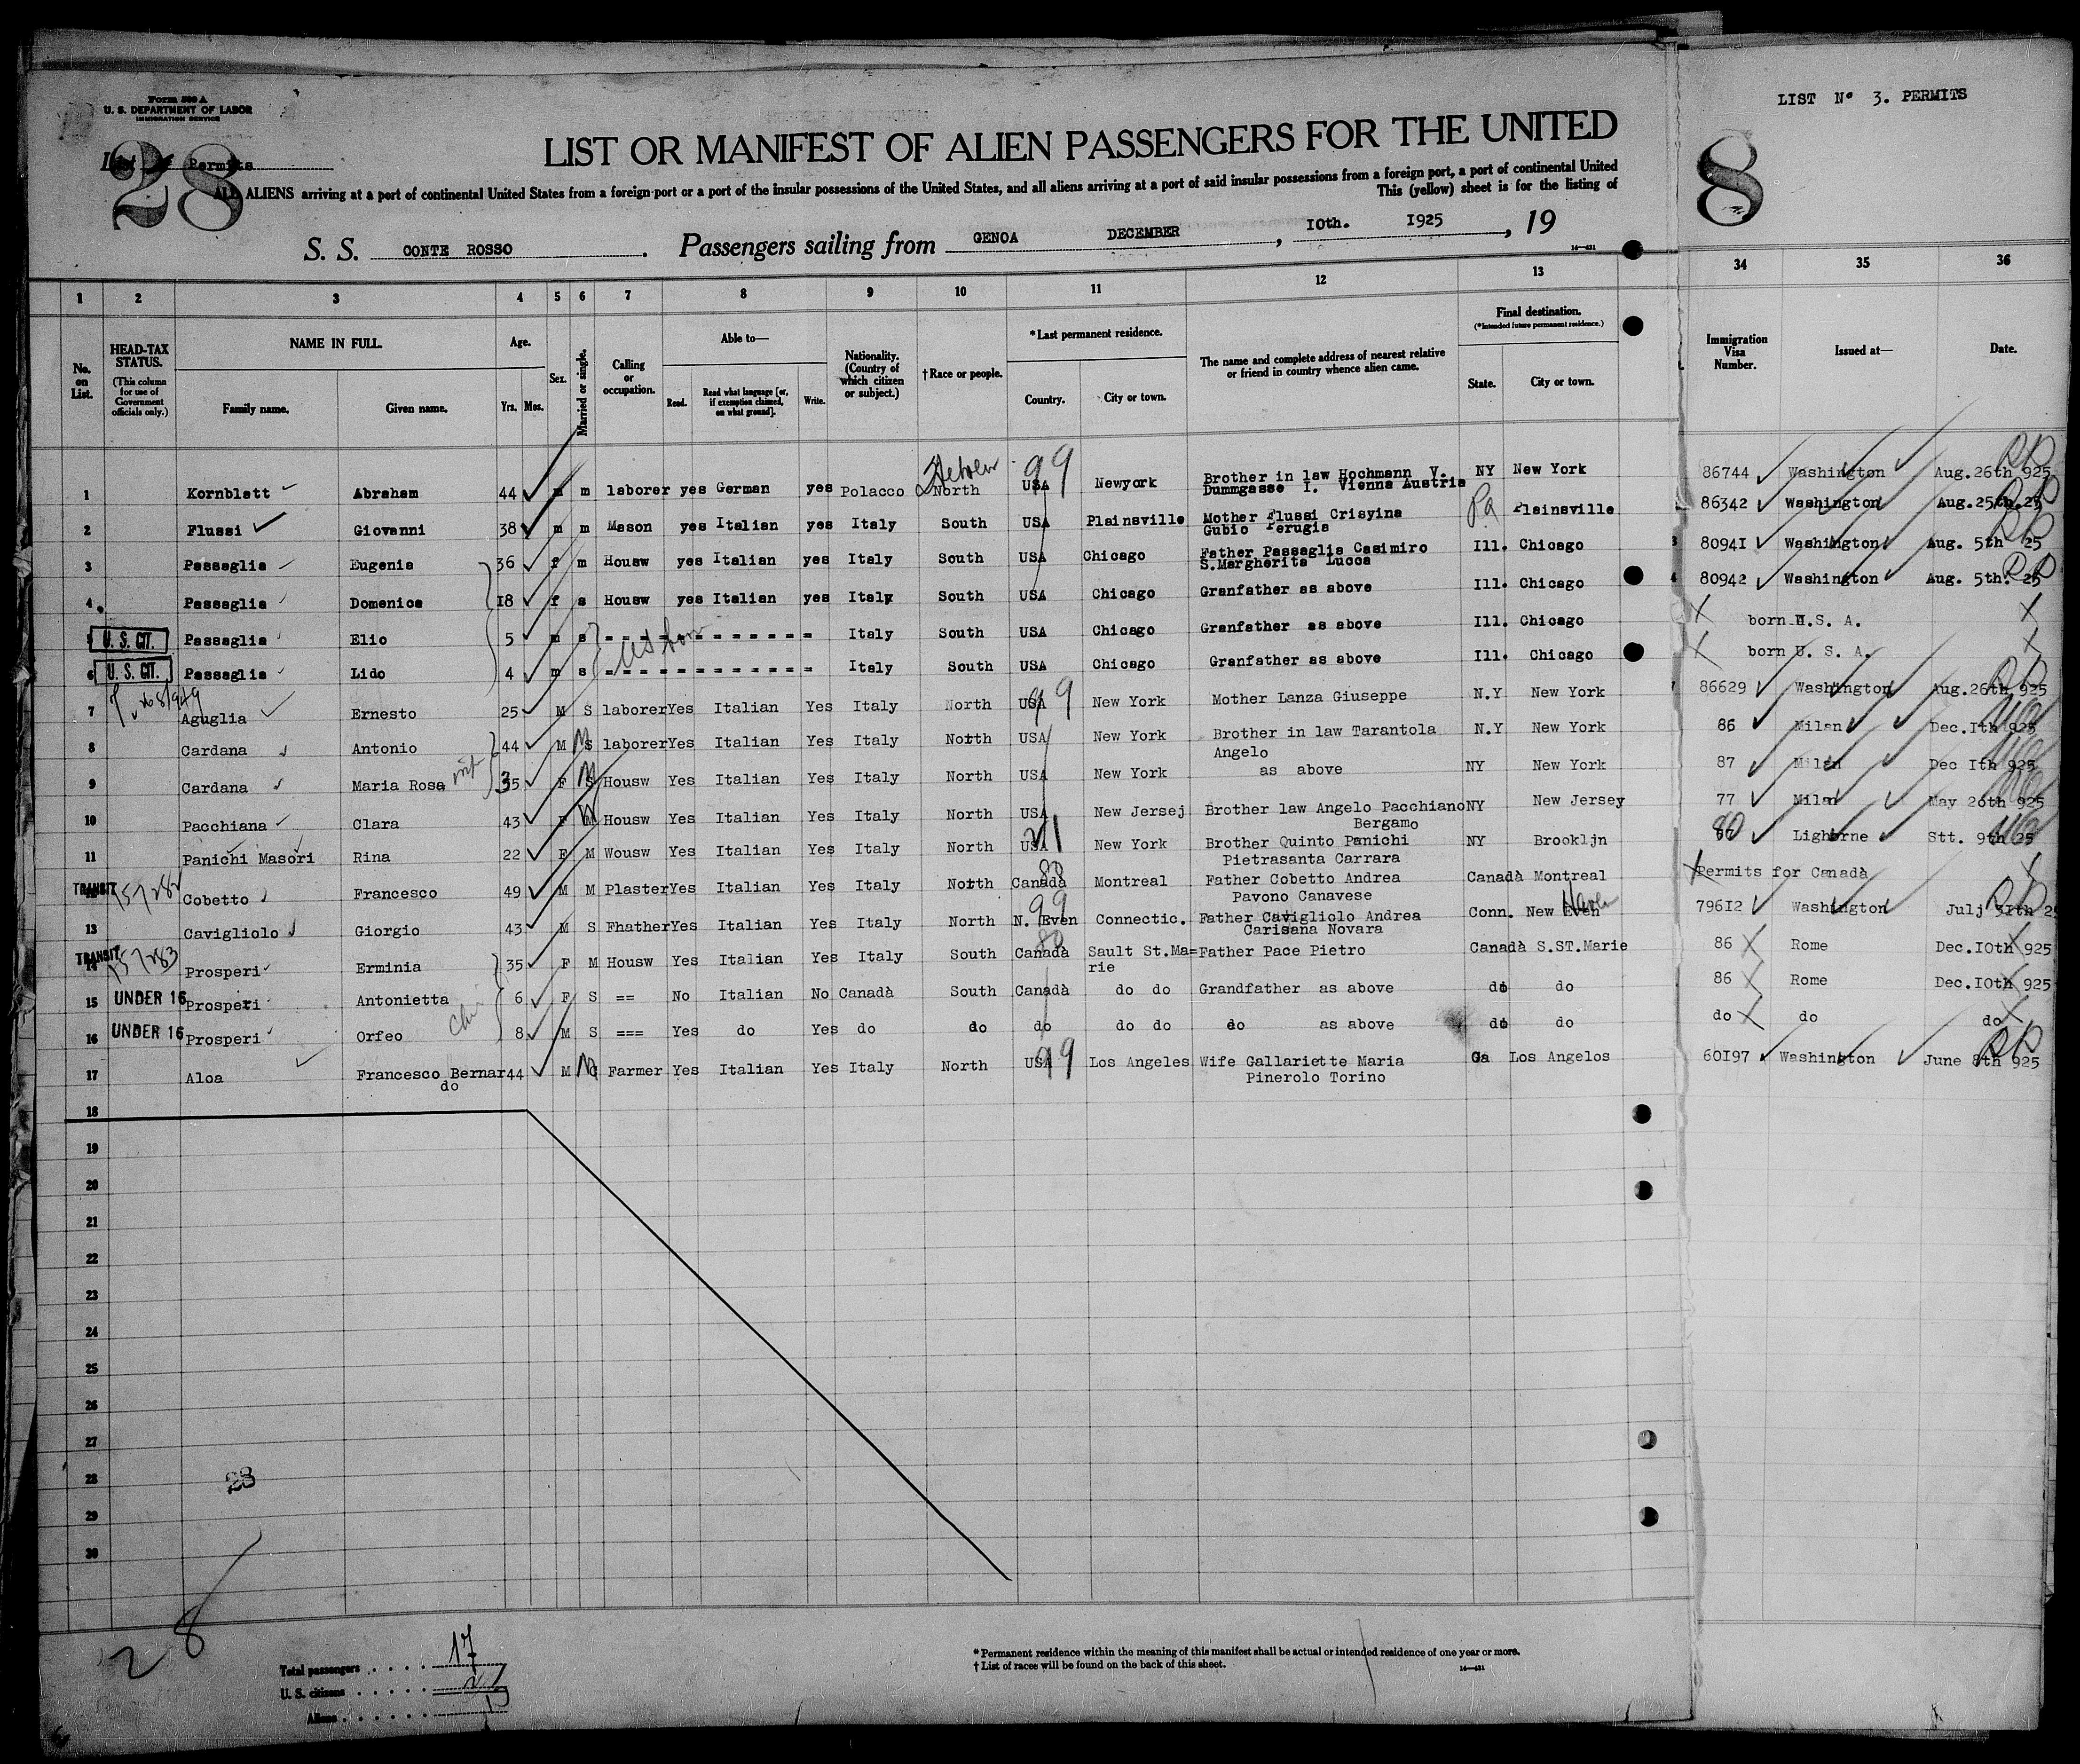 Form 500 A
U. S. DEPARTMENT OF LABOR
IMMIGRATION SERVICE
LIST Nº 3. PERMITS
List Permits
28
8
LIST OR MANIFEST OF ALIEN PASSENGERS FOR THE UNITED
ALL ALIENS arriving at a port of continental United States from a foreign port or a port of the insular possessions of the United States, and all aliens arriving at a port of said insular possessions from a foreign port, a port of continental United
This (yellow) sheet is for the listing of
S. S. CONTE ROSSO. Passengers sailing from GENOA DECEMBER, 10th. 1925, 19
14—431
1 2 3 4 5 6 7 8 9 10 11 12 13 34 35 36
No. on List. HEAD-TAX STATUS. (This column for use of Government officials only.) NAME IN FULL. Family name. Given name. Age. Yrs. Mos. Sex. Married or single. Calling or occupation. Able to— Read. Read what language [or, if exemption claimed, on what ground]. Write. Nationality. (Country of which citizen or subject.) †Race or people. *Last permanent residence. Country. City or town. The name and complete address of nearest relative or friend in country whence alien came. Final destination. (*Intended future permanent residence.) State. City or town. Immigration Visa Number. Issued at— Date.
1 Kornblatt Abraham 44 m m laborer yes German yes Polacco North Hebrew USA 99 Newyork Brother in law Hochmann V. Dummgasse I. Vienna Austria NY New York 86744 Washington Aug.26th 925
2 Flussi Giovanni 38 m m Mason yes Italian yes Italy South USA Plainsville Mother Flussi Crisyina Gubio Perugia Pa Plainsville 86342 Washington Aug.25th.25
3 Passaglia Eugenia 36 f m Housw yes Italian yes Italy South USA Chicago Father Passaglia Casimiro S.Margherita Lucca Ill. Chicago 80941 Washington Aug. 5th 25
4 Passaglia Domenica 18 f s Housw yes Italian yes Italy South USA Chicago Granfather as above Ill. Chicago 80942 Washington Aug. 5th. 25
5 U. S. CIT. Passaglia Elio 5 m s US born Italy South USA Chicago Granfather as above Ill. Chicago X born U.S. A. X
6 U. S. CIT. Passaglia Lido 4 m s Italy South USA Chicago Granfather as above Ill. Chicago X born U. S. A. X
7 Aguglia Ernesto 25 M S laborer Yes Italian Yes Italy North USA 99 New York Mother Lanza Giuseppe N.Y New York 86629 Washington Aug.26th 925
8 Cardana Antonio 44 M S M laborer Yes Italian Yes Italy North USA New York Brother in law Tarantola Angelo N.Y New York 86 Milan Dec.Ith 925
9 Cardana Maria Rosa 35 F S M Housw Yes Italian Yes Italy North USA New York as above NY New York 87 Milan Dec Ith 925
10 Pacchiana Clara 43 F M Housw Yes Italian Yes Italy North USA New Jersej Brother law Angelo Pacchiano Bergamo NY New Jersey 77 Milan May 20th 925
11 Panichi Masori Rina 22 F M Wousw Yes Italian Yes Italy North USA New York Brother Quinto Panichi Pietrasanta Carrara NY Brookljn 80 Lighorne Stt. 9th 25
TRANSIT 157282 Cobetto Francesco 49 M M Plaster Yes Italian Yes Italy North Canadà Montreal Father Cobetto Andrea Pavono Canavese Canadà Montreal X Permits for Canadà X
13 Cavigliolo Giorgio 43 M S Fhather Yes Italian Yes Italy North N. Even 99 Connectic. Father Cavigliolo Andrea Carisana Novara Conn. New Even Haven 79612 Washington Julj 31th 25
TRANSIT 14 157283 Prosperi Erminia 35 F M Housw Yes Italian Yes Italy South Canadà 80 Sault St.Ma=rie Father Pace Pietro Canadà S.ST.Marie 86 X Rome Dec.10th 925
15 UNDER 16 Prosperi Antonietta 6 F S == No Italian No Canadà South Canadà do do Grandfather as above do do 86 X Rome Dec.10th 925
16 UNDER 16 Prosperi Orfeo 8 M S === Yes do Yes do do do do do do as above do do do X do do X
17 Aloa Francesco Bernardo 44 M M Farmer Yes Italian Yes Italy North USA 99 Los Angeles Wife Gallariette Maria Pinerolo Torino Ca Los Angelos 60197 Washington June 8th 925
18
19
20
21
22
23
24
25
26
27
28
29
30
28
28
Total passengers . . . . 17
U. S. citizens . . . . . 2
Aliens . . . . . . 15
* Permanent residence within the meaning of this manifest shall be actual or intended residence of one year or more.
† List of races will be found on the back of this sheet.
14—431